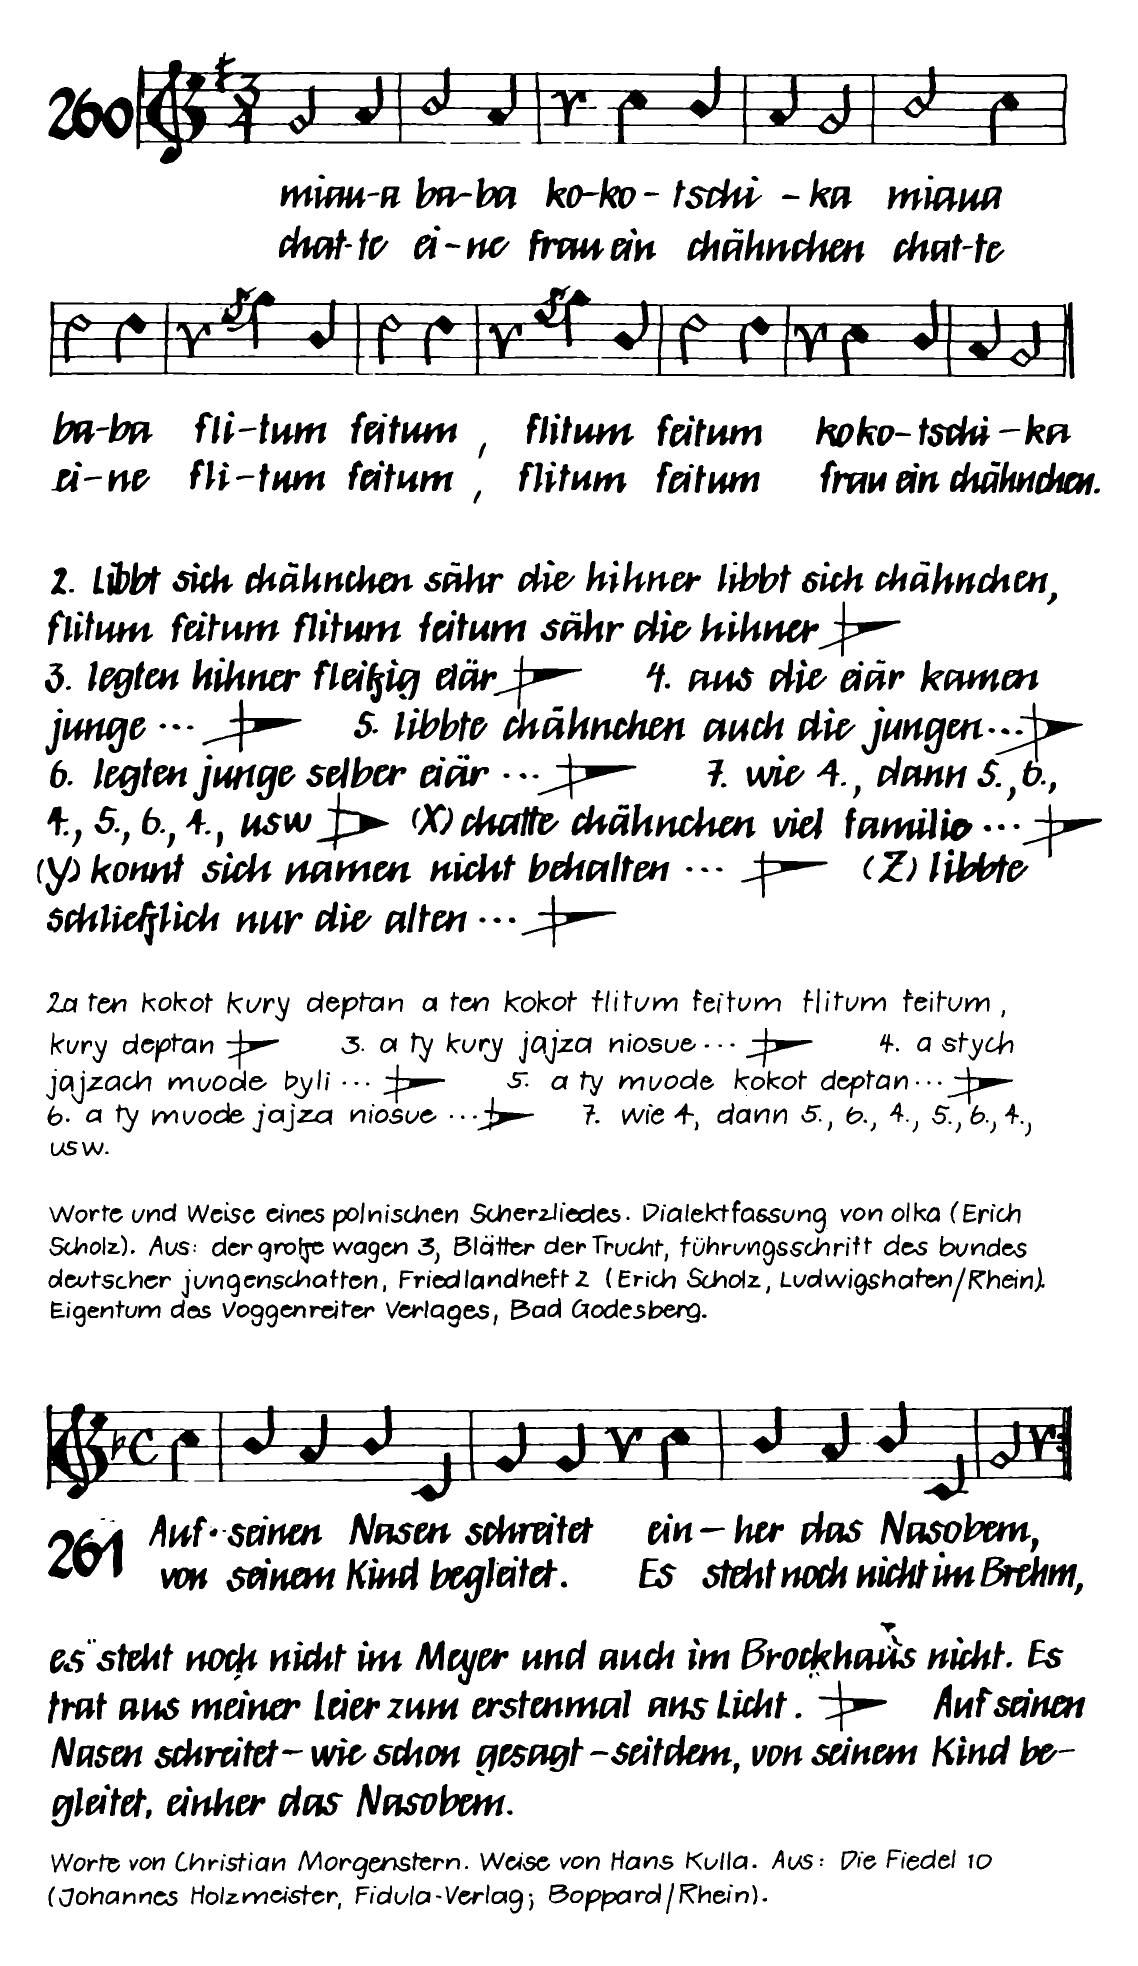 260
miau-a ba-ba ko-ko - tschi - ka miaua
chat-te ei-ne frau ein chähnchen chat-te
ba-ba fli-tum feitum , flitum feitum koko-tschi-ka
ei-ne fli-tum feitum , flitum feitum frau ein chähnchen.
2. libbt sich chähnchen sähr die hihner libbt sich chähnchen,
flitum feitum flitum feitum sähr die hihner
3. legten hihner fleißig eiär 4. aus die eiär kamen
junge ... 5. libbte chähnchen auch die jungen...
6. legten junge selber eiär ... 7. wie 4., dann 5., 6.,
4., 5., 6., 4., usw (X) chatte chähnchen viel familio ...
(Y) konnt sich namen nicht behalten ... (Z) libbte
schließlich nur die alten ...
2a ten kokot kury deptan a ten kokot flitum feitum flitum feitum,
kury deptan 3. a ty kury jajza niosue ... 4. a stych
jajzach muode byli ... 5. a ty muode kokot deptan...
6. a ty muode jajza niosue ... 7. wie 4, dann 5., 6., 4., 5., 6., 4.,
usw.
Worte und Weise eines polnischen Scherzliedes. Dialektfassung von olka (Erich
Scholz). Aus: der große wagen 3, Blätter der Trucht, führungsschrift des bundes
deutscher jungenschaften, Friedlandheft 2 (Erich Scholz, Ludwigshafen/Rhein).
Eigentum des Voggenreiter Verlages, Bad Godesberg.
261 Auf seinen Nasen schreitet ein- her das Nasobem,
von seinem Kind begleitet. Es steht noch nicht im Brehm,
es steht noch nicht im Meyer und auch im Brockhaus nicht. Es
trat aus meiner Leier zum erstenmal ans Licht. Auf seinen
Nasen schreitet- wie schon gesagt -seitdem, von seinem Kind be-
gleitet, einher das Nasobem.
Worte von Christian Morgenstern. Weise von Hans Kulla. Aus: Die Fiedel 10
(Johannes Holzmeister, Fidula-Verlag; Boppard/Rhein).